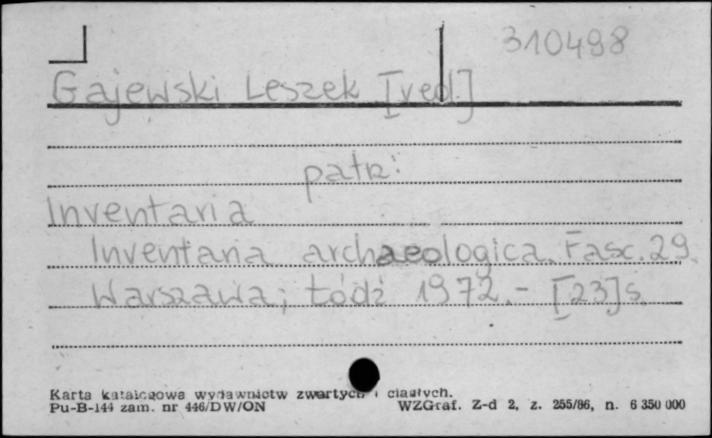 310498
Gajewski Leszek [red.]
patrz:
Inventaria
Inventaria archaeologica. Fasc. 29.
Warszawa; Łódź 1972. - [23] s.
Karta katalogowa wydawnictw zwartych i ciągłych.
Pu-B-144 zam. nr 446/DW/ON
WZGraf. Z-d 2, z. 255/86, n. 6 350 000